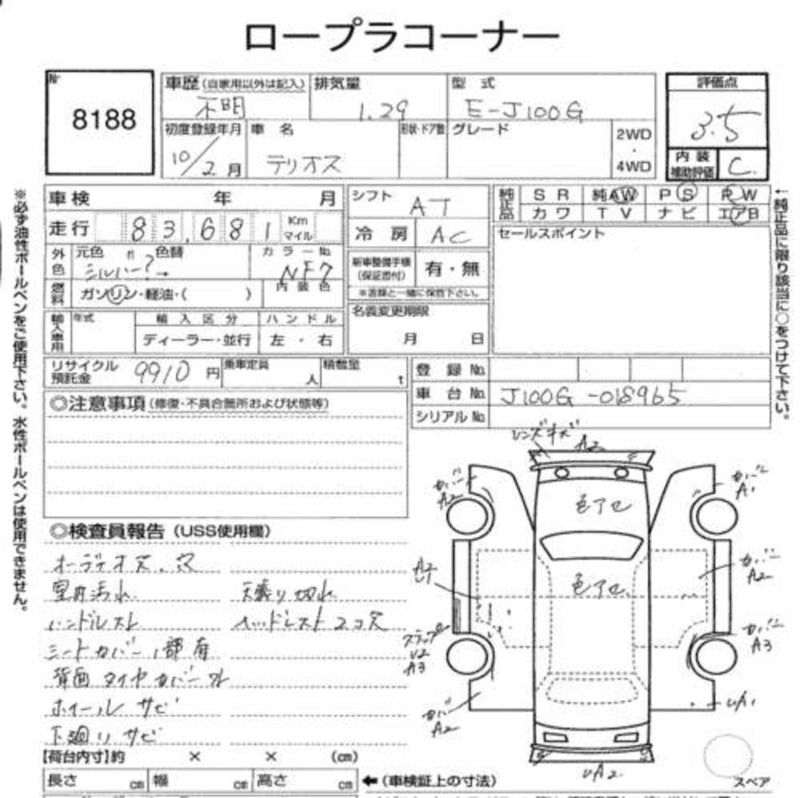 ロープラコーナー
№ 8188
車歴 (自家用以外は記入) 不明
排気量 1.29
型式 E-J100G
評価点 3.5
初度登録年月 10/2月
車名 テリオス
形状・ドア数
グレード
2WD・4WD
内装補助評価 C
※必ず油性ボールペンをご使用下さい。水性ボールペンは使用できません。
車検 年 月
走行 83,681 Km マイル
外色 元色 色替 シルバー?→
カラーNo. NF7
燃料 ガソリン・軽油・( )
内装色
輸入車用 年式 輸入区分 ハンドル
ディーラー・並行 左・右
シフト AT
冷房 AC
新車整備手帳(保証書付) 有・無
※書類と一緒に保管下さい。
名義変更期限
月 日
純正品 SR 純AW PS PW
カワ TV ナビ エアB
セールスポイント
←純正品に限り該当に○をつけて下さい。
リサイクル預託金 9910円
乗車定員 人
積載量 t
登録 No.
車台 No. J100G-018965
シリアル No.
◎注意事項 (修復・不具合箇所および状態等)
◎検査員報告 (USS使用欄)
天張り切れ
ハンドルスレ
ヘッドレスト2コ欠
シートカバー1部有
背面タイヤカバー
ホイールサビ
下廻りサビ
レンズキズ A2
カバーA2
カバーA1
色アセ
色アセ
カバーA2
ステップ U2 A3
カバーA3
カバーA2
UA1
UA2
スペア
【荷台内寸】約 × × (cm)
長さ cm 幅 cm 高さ cm
←(車検証上の寸法)